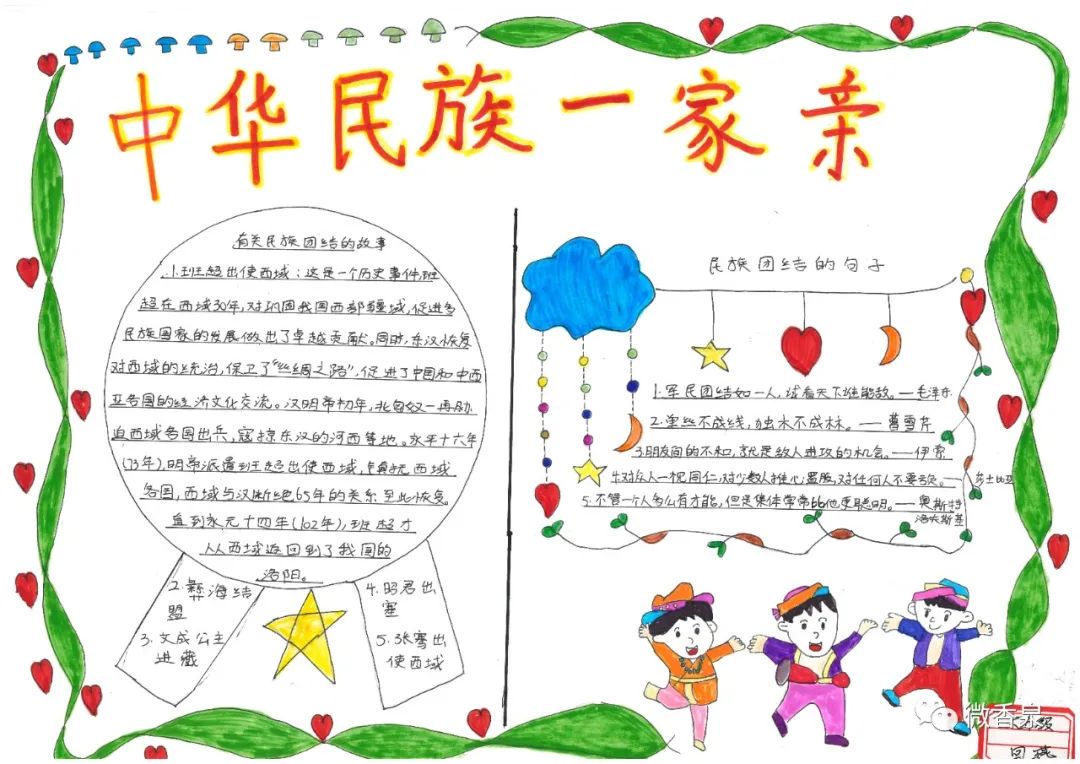 中华民族一家亲
有关民族团结的故事
1.班超出使西域：这是一个历史事件,班
超在西域30年,对巩固我国西部疆域,促进多
民族国家的发展做出了卓越贡献。同时,东汉恢复
对西域的统治,保卫了“丝绸之路”,促进了中国和中西
亚各国的经济文化交流。汉明帝初年,北匈奴一再胁
迫西域各国出兵,寇掠东汉的河西等地。永平十六年
(73年),明帝派遣班超出使西域,镇抚西域
各国,西域与汉断绝65年的关系至此恢复。
直到永元十四年(102年),班超才
从西域返回到了我国的
洛阳。
2.彝海结
盟
3.文成公主
进藏
4.昭君出
塞
5.张骞出
使西域
民族团结的句子
1.军民团结如一人,试看天下谁能敌。—毛泽东
2.单丝不成线,独木不成林。——曹雪芹
3.朋友间的不和,就是敌人进攻的机会。——伊索
4.对众人一视同仁,对少数人推心置腹,对任何人不要亏负。——莎士比亚
5.不管一个人多么有才能,但是集体常常比他更聪明。——奥斯特
洛夫斯基
微香泉